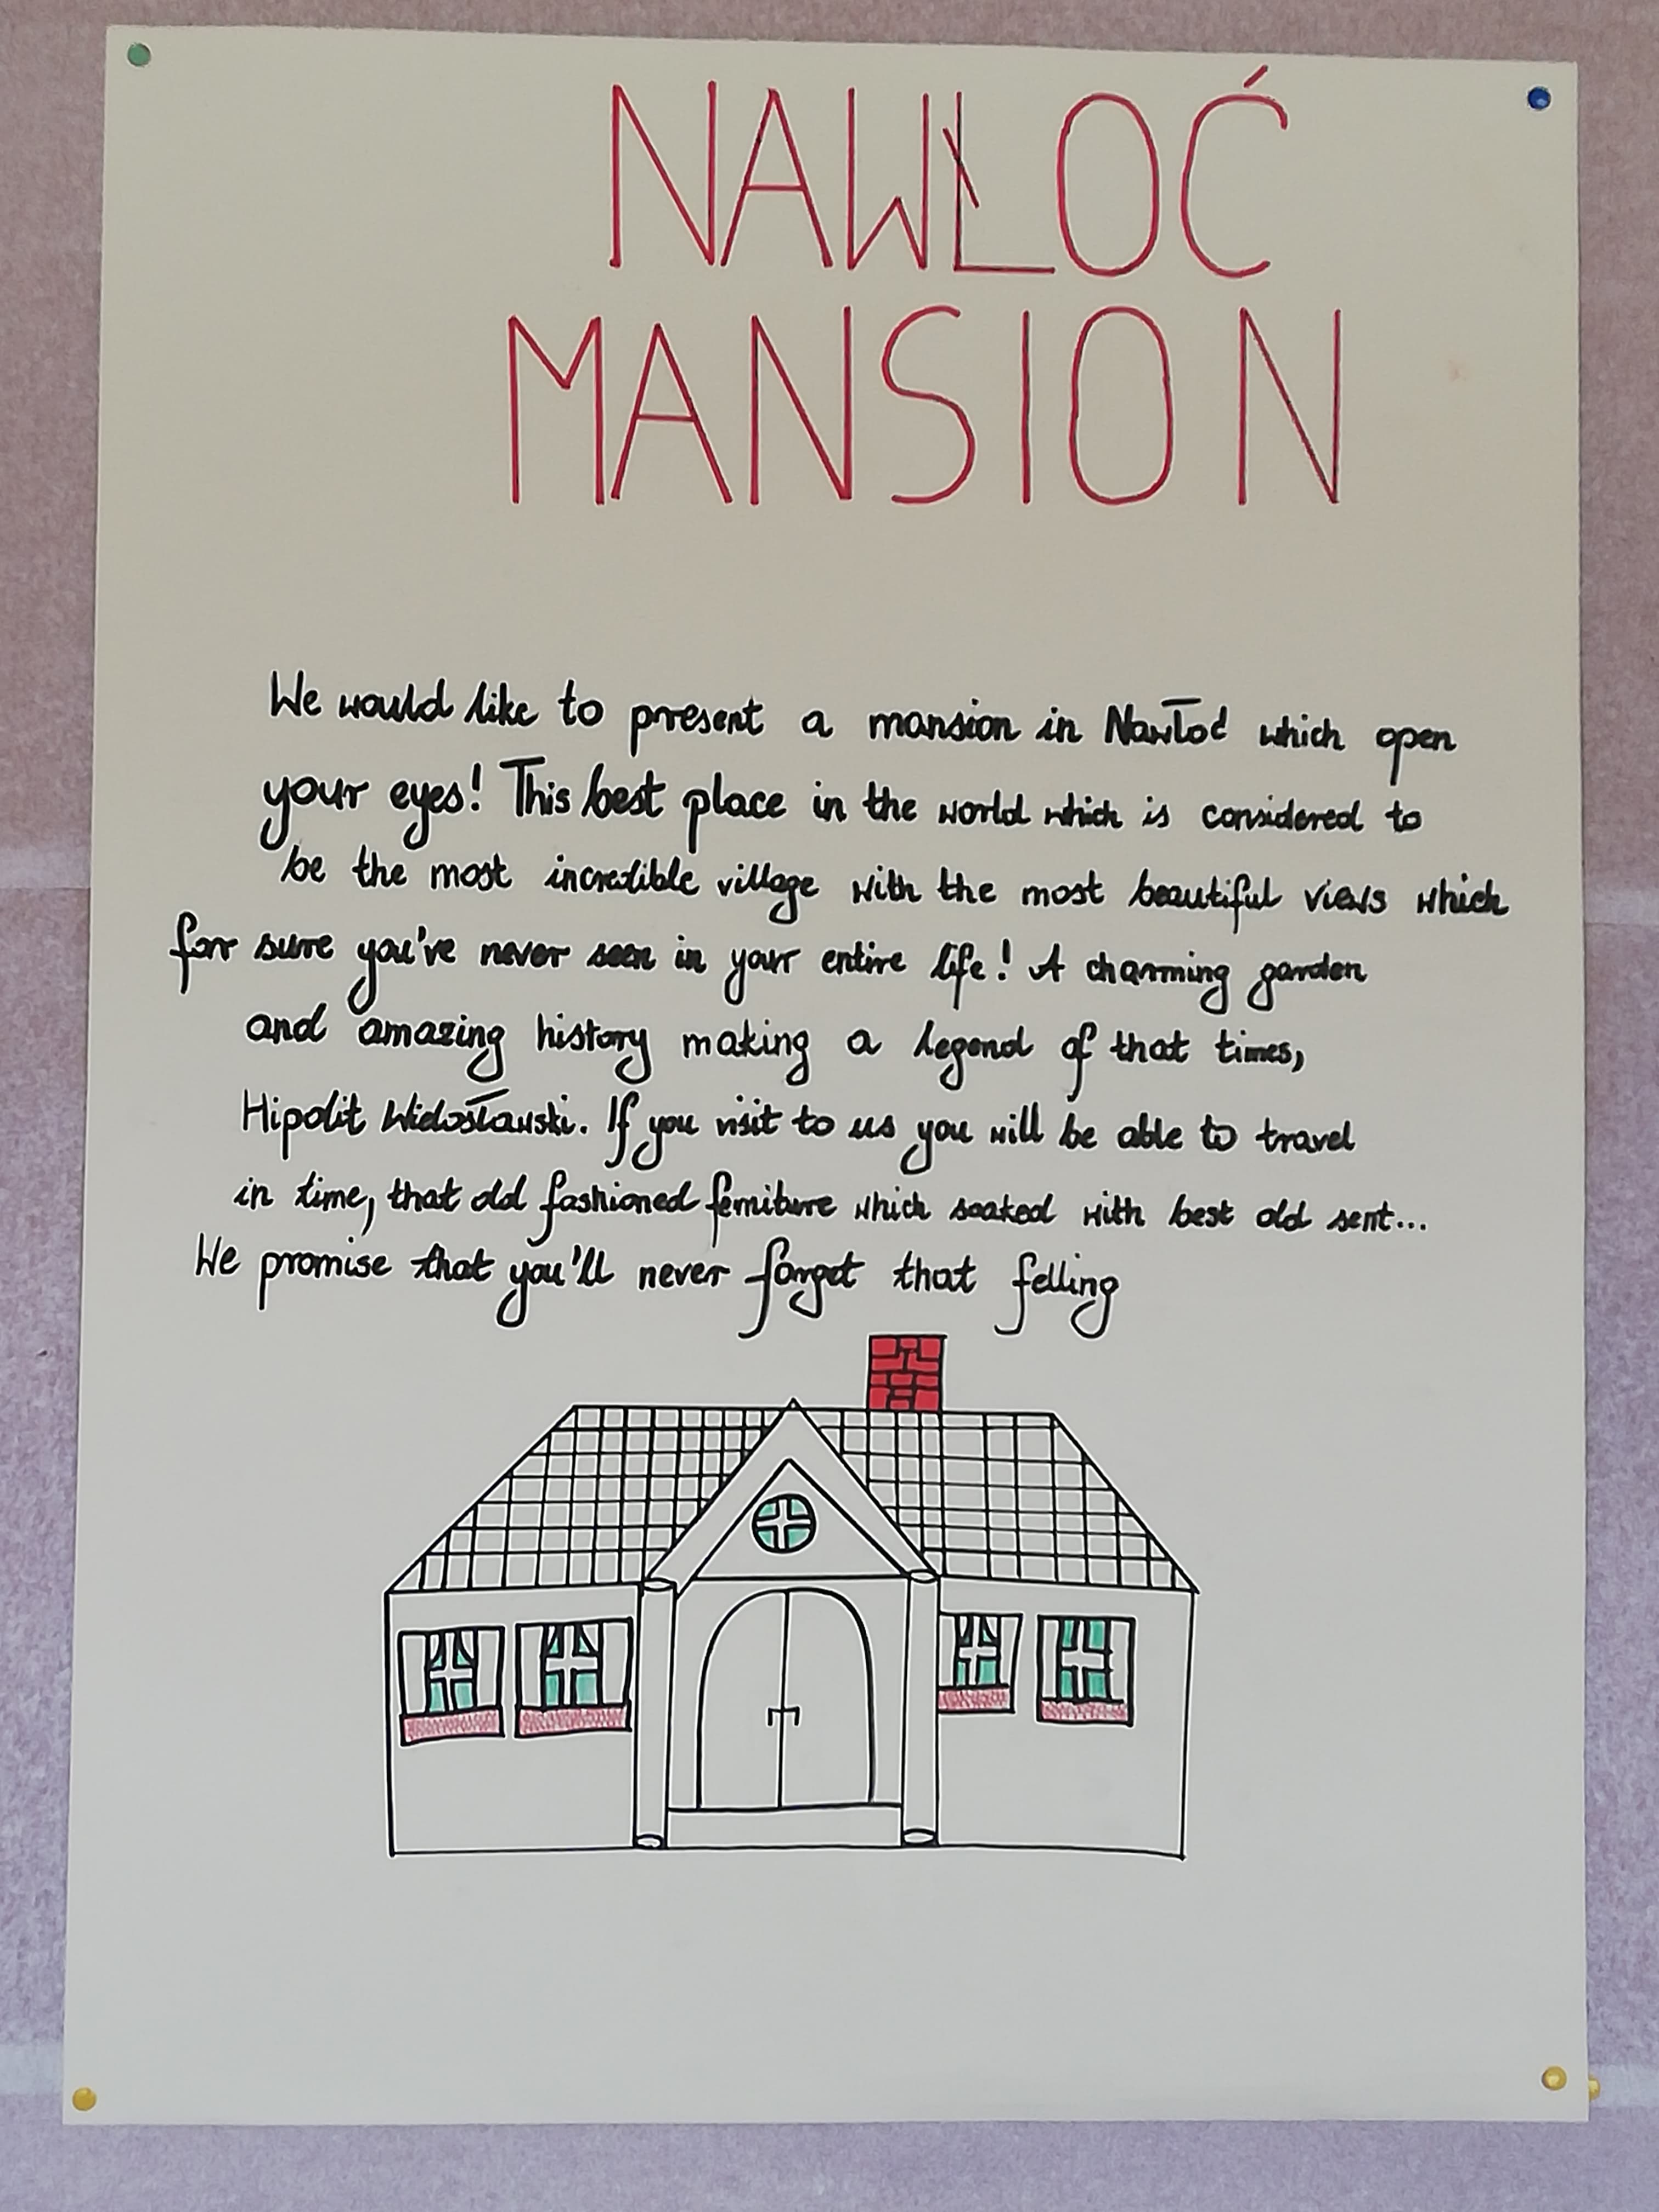 NAWŁOĆ
MANSION
We would like to present a mansion in Nawłoć which open
your eyes! This best place in the world which is considered to
be the most incredible village with the most beautiful views which
for sure you've never seen in your entire life! A charming garden
and amazing history making a legend of that times,
Hipolit Wielosławski. If you visit to us you will be able to travel
in time, that old fashioned ferniture which soaked with best old sent...
We promise that you'll never forget that felling